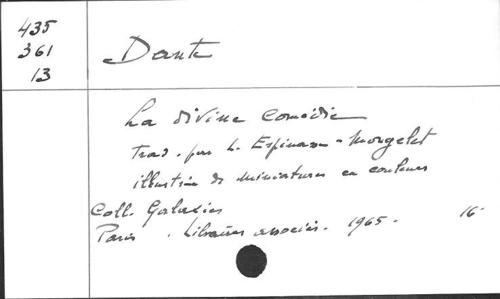 435
361
13
Dante
La divine Comédie
Trad. par L. Espinasse-Mongelet
illustrée de miniatures en couleurs
Coll. Galaxies
Paris. Libraires associés. 1965. 16-